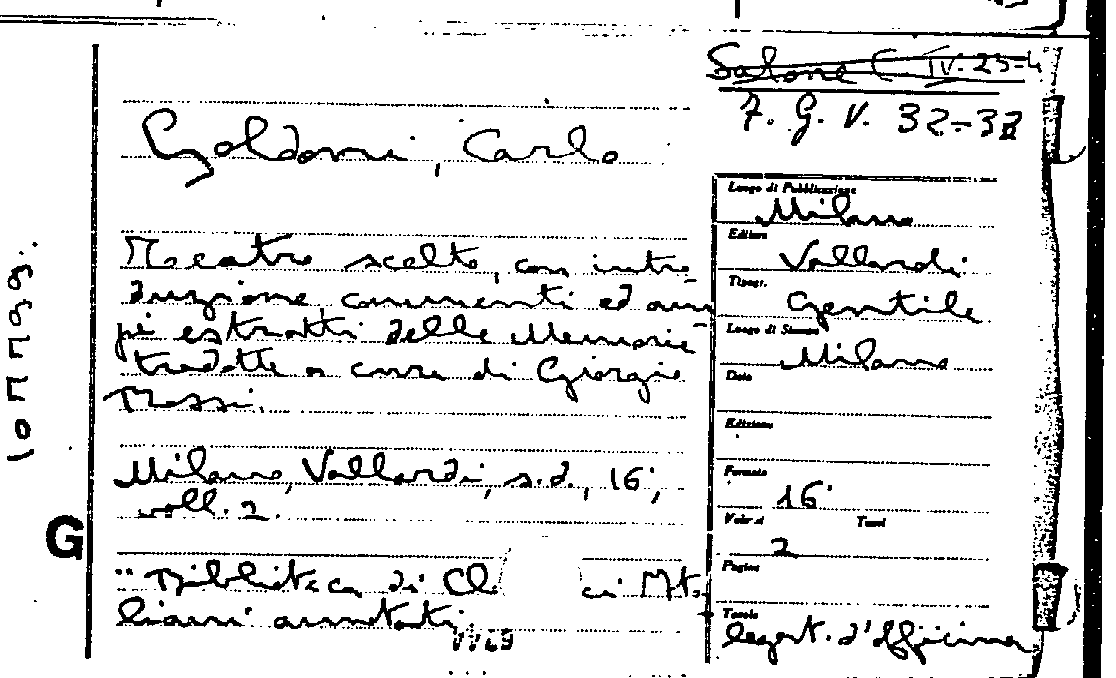 Salone C IV. 23-4
7. G. V. 32-33
Goldoni, Carlo
Teatro scelto, con intro
duzione, commenti ed am
pi estratti delle Memorie
tradotte a cura di Giorgio
Rossi.
Milano, Vallardi, s.d., 16°,
voll. 2.
"Biblioteca di Cl ci Ita
liani annotati
Luogo di Pubblicazione
Milano
Editore
Vallardi
Tipogr.
Gentile
Luogo di Stampa
Milano
Data
Edizione
Formato
16°
Volumi Tomi
2
Pagine
Tavole
legat. d'officina
G